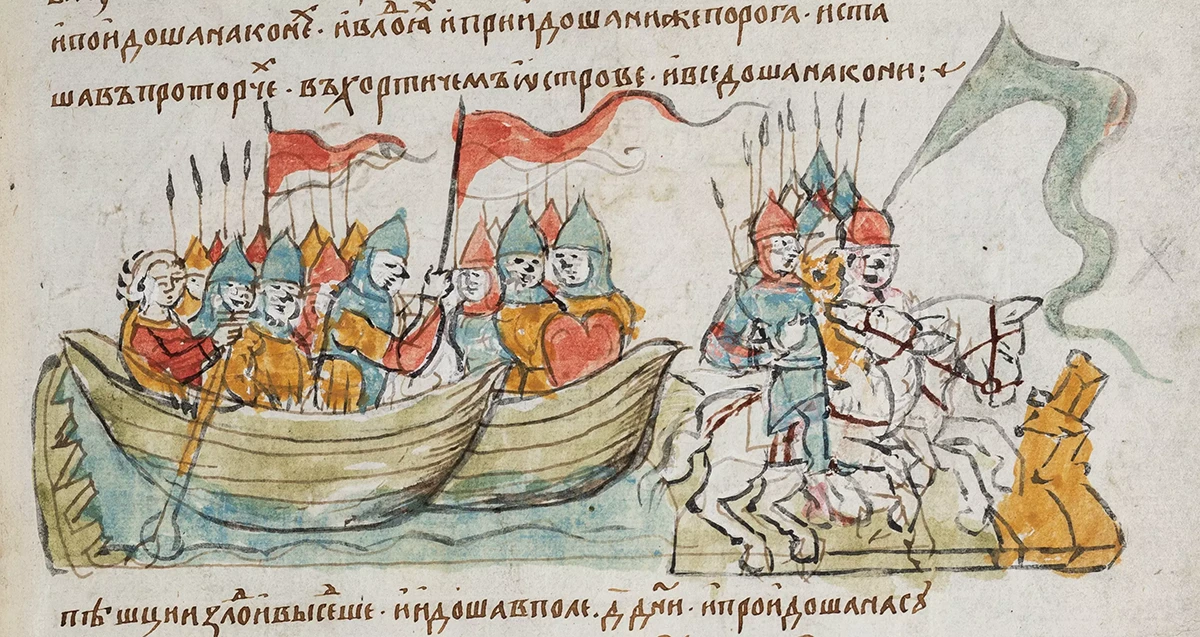 ипоидошанаконеⷯ · ивлоⷣꙗⷯ ипрїидошанижепорога · иста
шавъпроторчеⷯ · въхортичемъѡстрове · ивседошанакони :
пѣшциизлоⷣивысеⷣше · иидошавполе . д҃ дн҃и · ипроидошанасꙋ